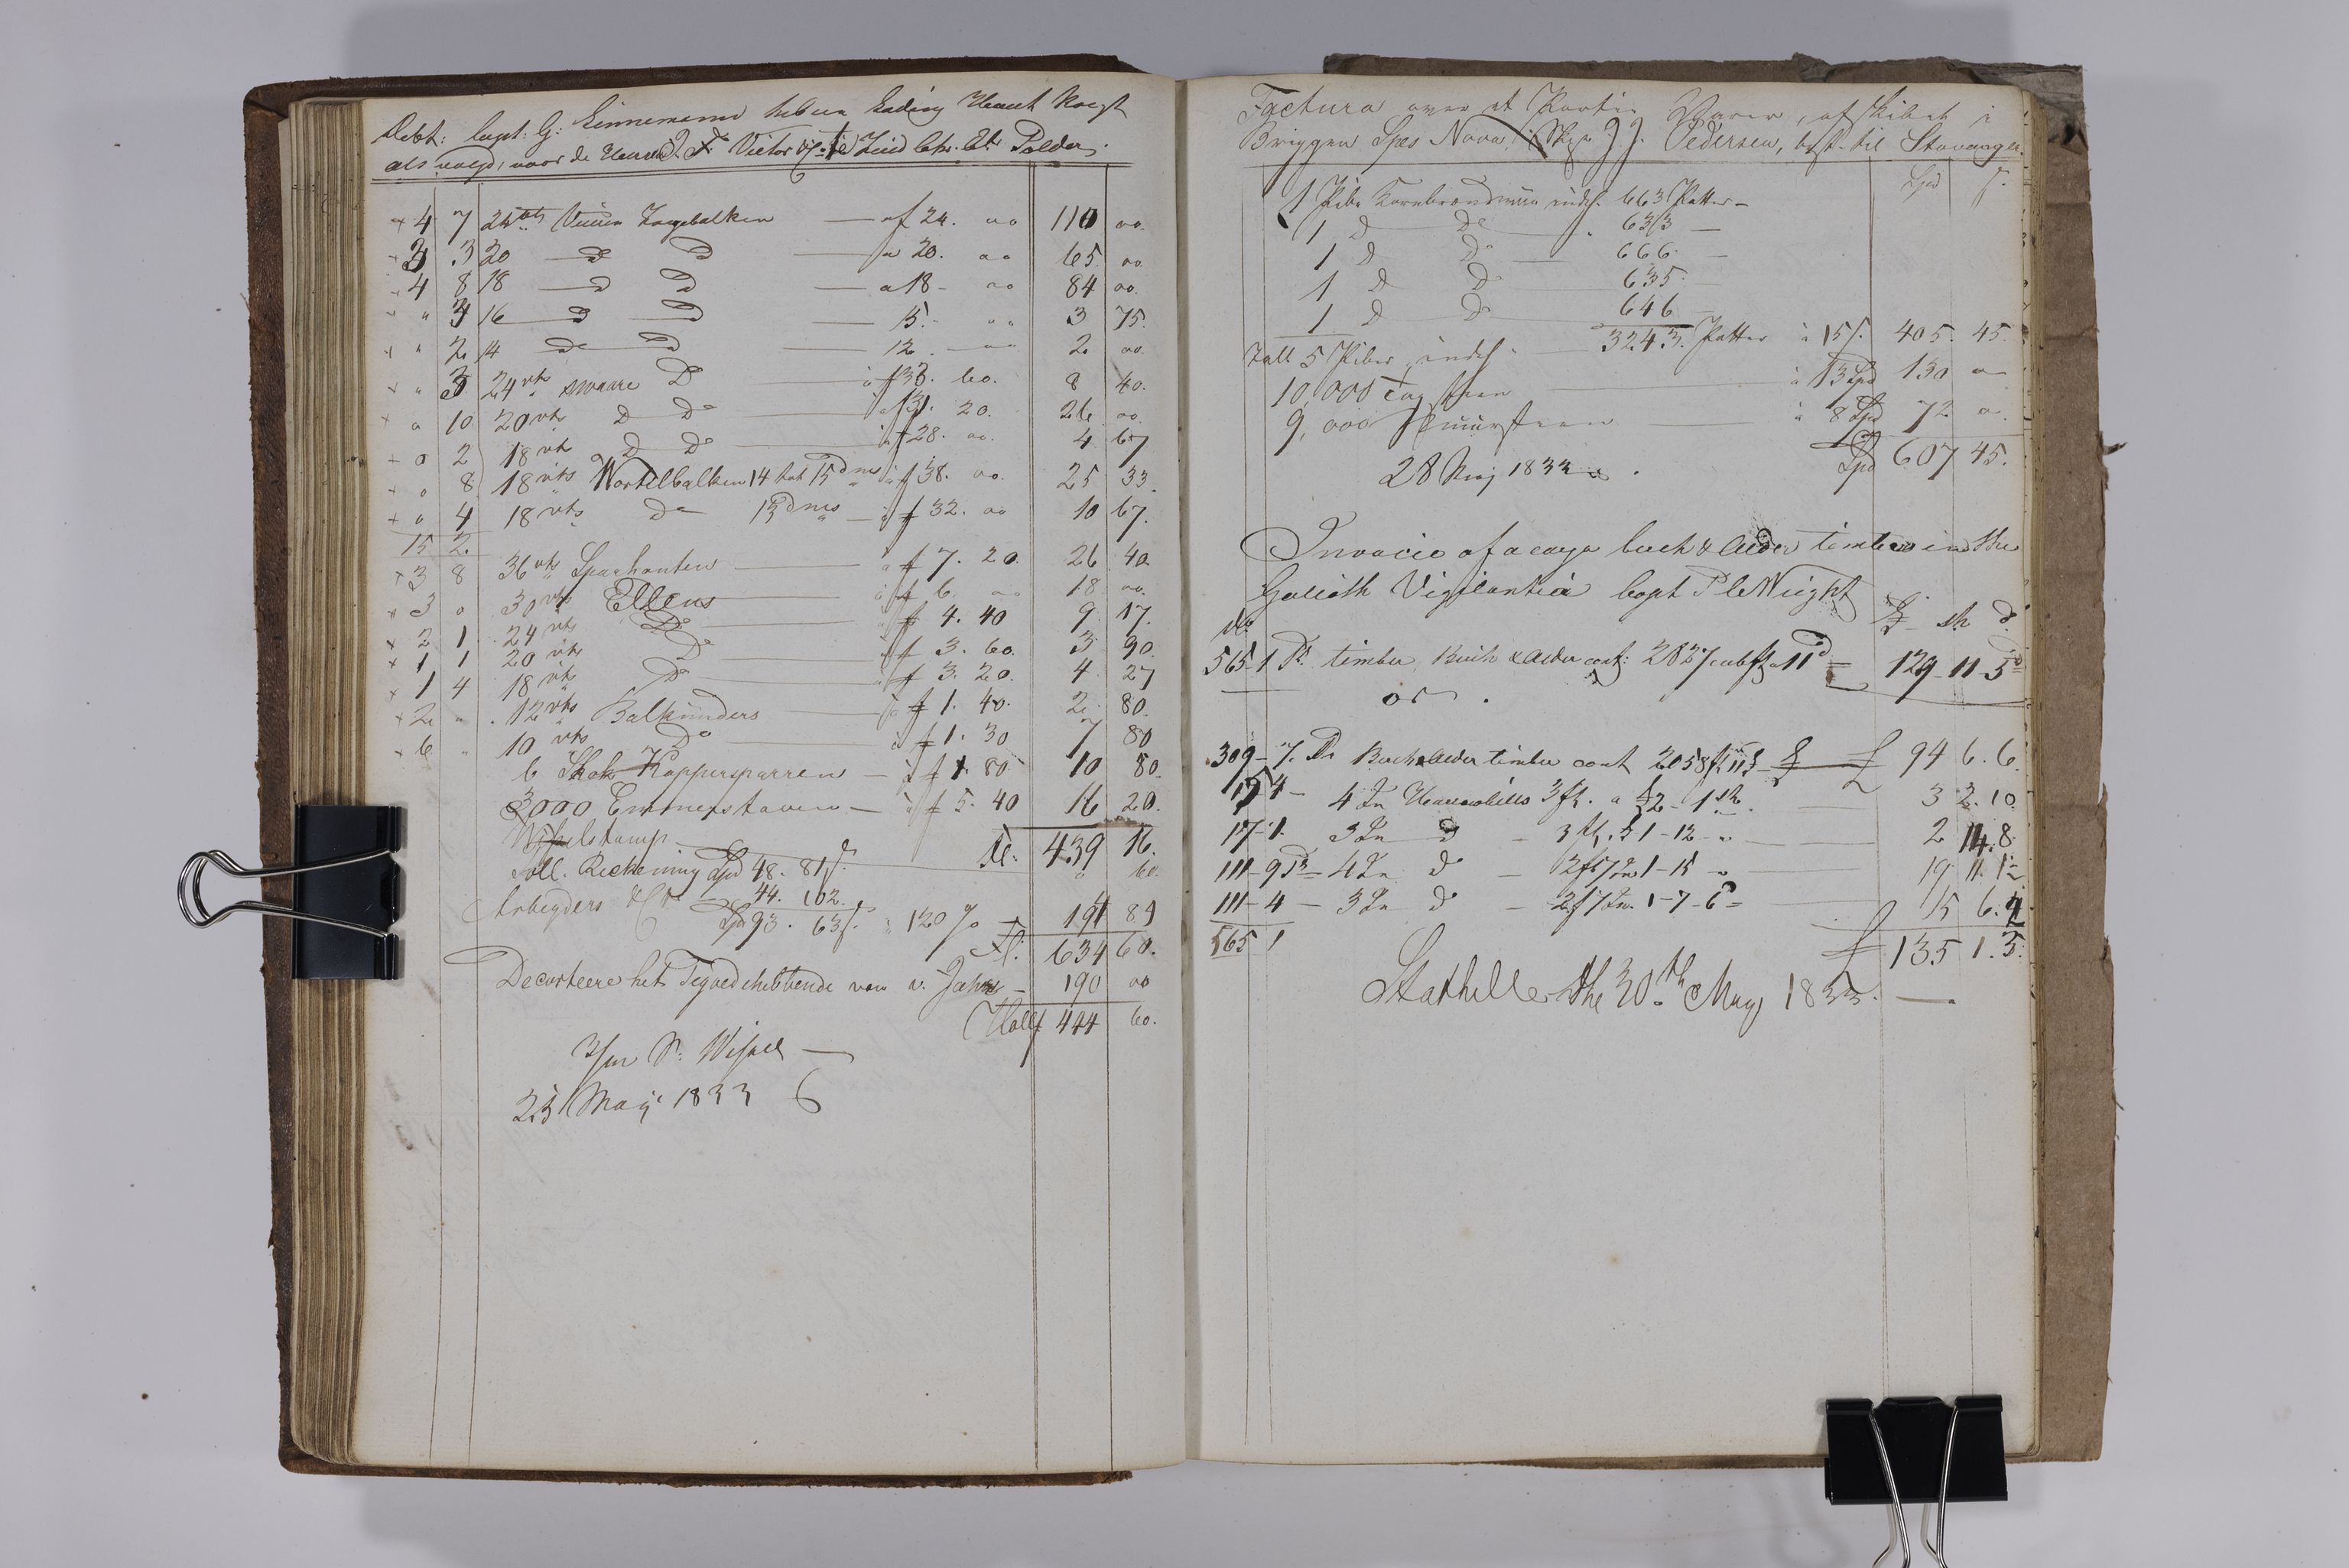 Debt: Capt: G: Linnemann heben Lading Hout
als volgt, voor de Heeren J. F. Victor &
× 4 7 24 vts Vuuren Zagebalken — a f 24. oo 110 oo.
× 3 3 20 — Do Do — a 20. oo 65 oo
× 4 8 18 — Do Do — a 18 - oo 84 oo.
× " 3 16 — Do Do — 15. - " " 3 75.
× " 2 14 Do Do — 12. — oo 2 oo
× " 3 24 vts swaare Do — à f 33. 60. 8 40.
× o 10 20 vts D Do — à f 31. 20. 26 oo
× o 2 18 vts D Do — à f 28. oo. 4 67
× o 8 18 vts Wortelbalken 14 tot 15 dms à f 38. oo 25 33.
× o 4 18 vts Do 13 dms — à f 32. oo 10 67.
15 2
× 3 8 36 vts Sparhouten — à f 7. 20 26 40
× 3 o 30 vts Ellens — à f 6. oo 18 oo.
× 2 1 24 vts Do — à f 4. 40 9 17.
× 1 1 20 vts Do — à f 3. 60. 3 90.
× 1 4 18 vts Do — à f 3. 20. 4 27
× 2 " 12 vts Balkunders — à f 1. 40. 2 80.
× 6 " 10 vts Do — à f 1. 30 7 80
6 Skok Kappersparren — à f 1. 80 10 80.
3000 Emmerstaven — à f 5. 40 16 20.
fl: 439 16.
Toll. Reckening Spd 48. 81 s. o 60
Arbeyders &c. 44. 102.
Spd 93. 63 s. à 120 % 191 84
fl. 634 60.
Decorteere het Tegoedhebbende van v. Jahr — 190 oo
Holl f 444 60.
23 Maij 1833
Factura over et Partie Varer, afskibet i
Briggen Spes Nova, Skpr J J. Pedersen, best. til Stavanger.
Spd s.
1 Pibe Kornbrændeviin indh. 663 Potter —
1 D Do 633 —
1 D Do — 666 —
1 D Do 635 —
1 D Do 646
Tall 5 Piber, indh. — 3243. Potter à 15 s. 405. 45.
10,000 Tagsteen — à 13 Spd 130 o
9,000 Muursteen — à 8 Spd 72 o.
Spd 607 45.
28 Maj 1833
Invoice of a cargo beech & Alder timber in the
Galioth Vigilantia Capt P le Wright
£ sh d.
565 1 Ps timber Birch & Alder cont: 2827 cubft a 11 d = 129 - 11 - 5 d
or .
309 - 7. Ps Birch & Alder timber cont 2058 ft 11 d — £ 94 6. 6.
4 In 3 ft. a £2 - 1 sh — 3 2. 10.
17 1. 3 In d — 3 ft. £ 1 - 12 — 2 14. 8.
111 - 9 Ps — 4 In d — 2 ft 7 In 1 - 15 — 19 11. 1
111 - 4 — 3 In d — 2 f 7 In. 1 - 7 - 6 — 15 6. 4
565 1 £ 135 1. 5.
Stathelle the 30th May 1833. —